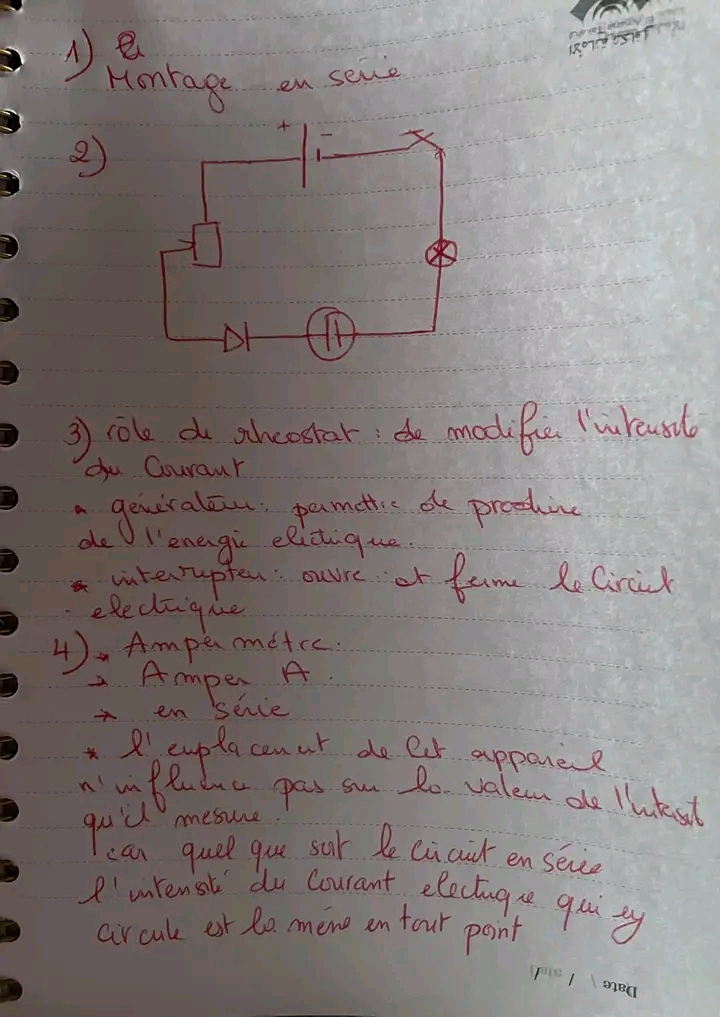 1) Montage en série
2)
+ -
3) rôle de rheostat : de modifier l'intensité
du Courant
générateur : permettre de produire
de l'energie electrique.
* interrupteur : ouvre et ferme le Circuit
electrique
4) → Ampermétre.
→ Amper A.
→ en série
* l'emplacement de Cet appareil
n'influence pas sur la valeur de l'intesit
qu'il mesure.
car quel que soit le circuit en série
l'intensité du Courant electrique qui ey
circule est la même en tout point
Date /